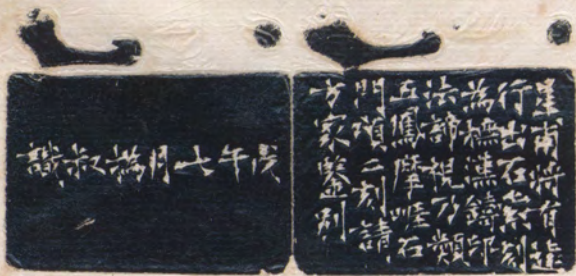 甫將有遠
行出石索刻
為橅漢鑄印
法諦視乃類
五鳳摩崖石
門頌二刻請
方家鑒別
戊午七月撝叔識